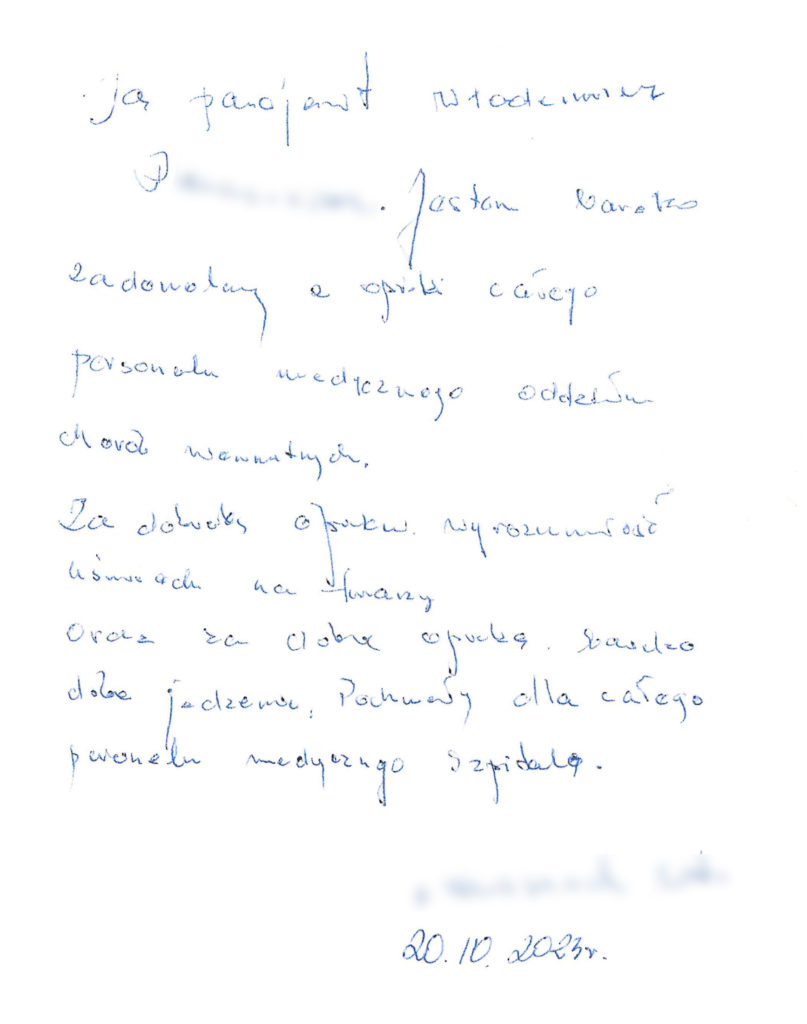 Ja pacjent Włodzimierz
P . Jestem bardzo
zadowolany z opieki całego
personelu medycznego oddziału
chorób wewnętrznych.
Za dobrą opiekę. wyrozumiałość
uśmiech na twarzy
oraz za dobrą opiekę. bardzo
dobre jedzenie, Pochwały dla całego
personelu medycznego szpitala.
20.10.2023r.